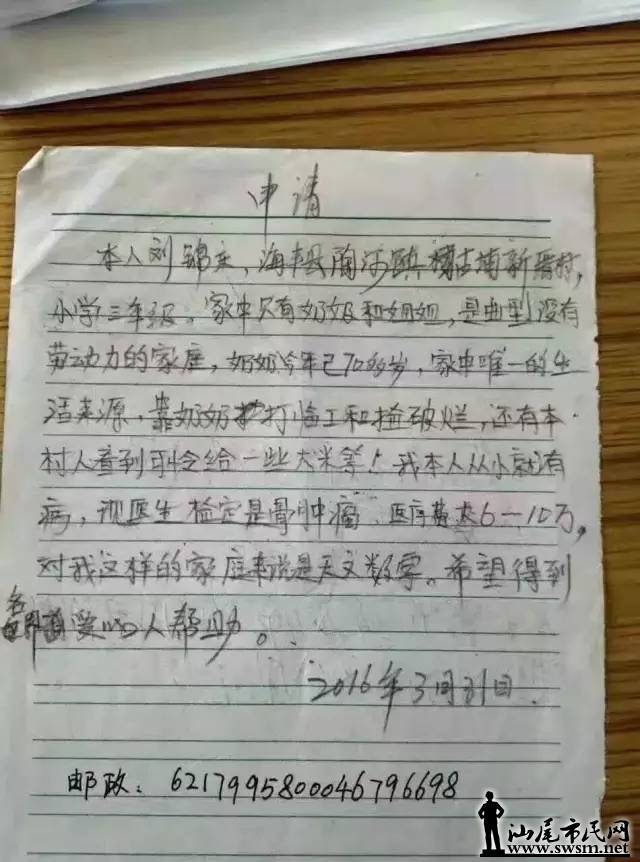 申请
本人刘锦庄,海丰县陶河镇 古埔新 村,
小学三年级。家中只有奶奶和姐姐,是典型没有
劳动力的家庭,奶奶今年已70多岁,家中唯一的生
活来源,靠奶奶打临工和捡破烂,还有本
村人看到可怜给一些大米等!我本人从小就有
病,现医生检定是骨肿瘤.医疗费要6-10万,
对我这样的家庭来说是天文数字。希望得到
各界 爱心人帮助。
2016年3月31日.
邮政:6217995800046796698
汕尾市民网
www.swsm.net